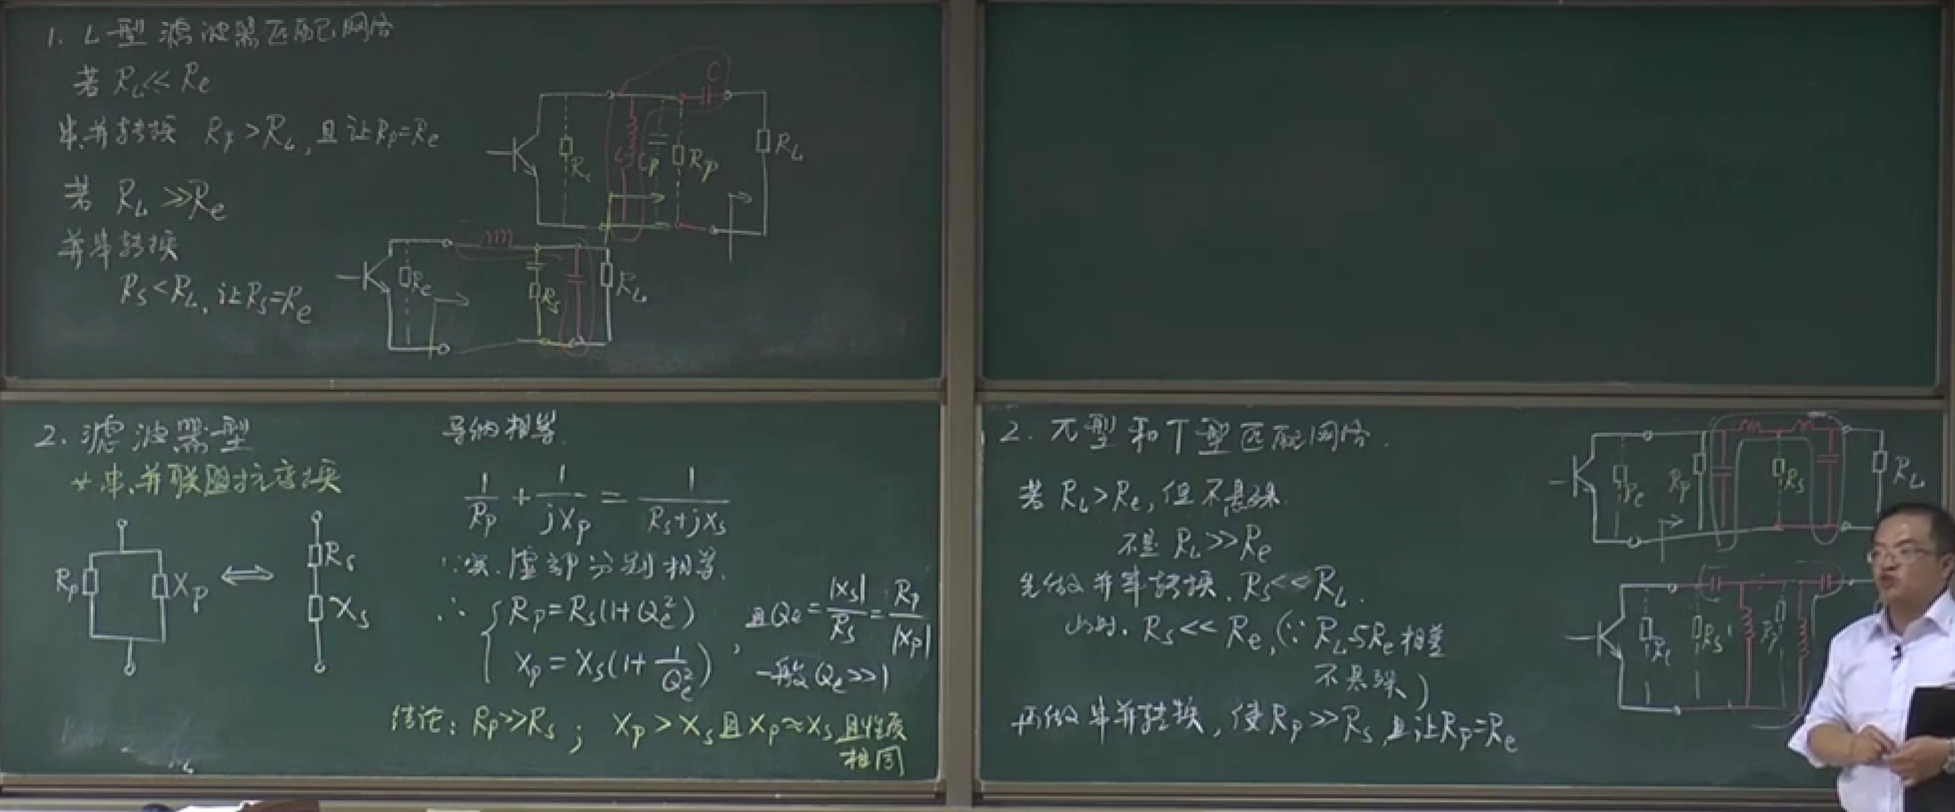 1. L型滤波器匹配网络
若 R_L≪R_e
串并转换 R_p>R_L,且让R_p=R_e
若 R_L≫R_e
并串转换
R_s<R_L,让R_s=R_e
C
L
C_p
R_p
R_L
R_e
R_s
R_L
2.滤波器型
*串、并联阻抗变换
R_p
X_p
⇔
R_s
X_s
导纳相等.
1/R_p + 1/jX_p = 1/(R_s+jX_s)
∵实、虚部分别相等.
∴ { R_p=R_s(1+Q_e²)
X_p=X_s(1+1/Q_e²) ,
且Q_e=|X_s|/R_s=R_p/|X_p|
一般Q_e>>1
结论:R_p≫R_s; X_p>X_s且X_p≈X_s且性质
相同
2. π型和T型匹配网络.
若 R_L>R_e,但不悬殊.
不是 R_L≫R_e
先做并串转换.R_s<<R_L.
此时.R_s<<R_e,(∵R_L与R_e相差
不悬殊)
再做串并转换,使R_p≫R_s,且让R_p=R_e
R_e
R_p
R_s
R_L
R_e
R_s